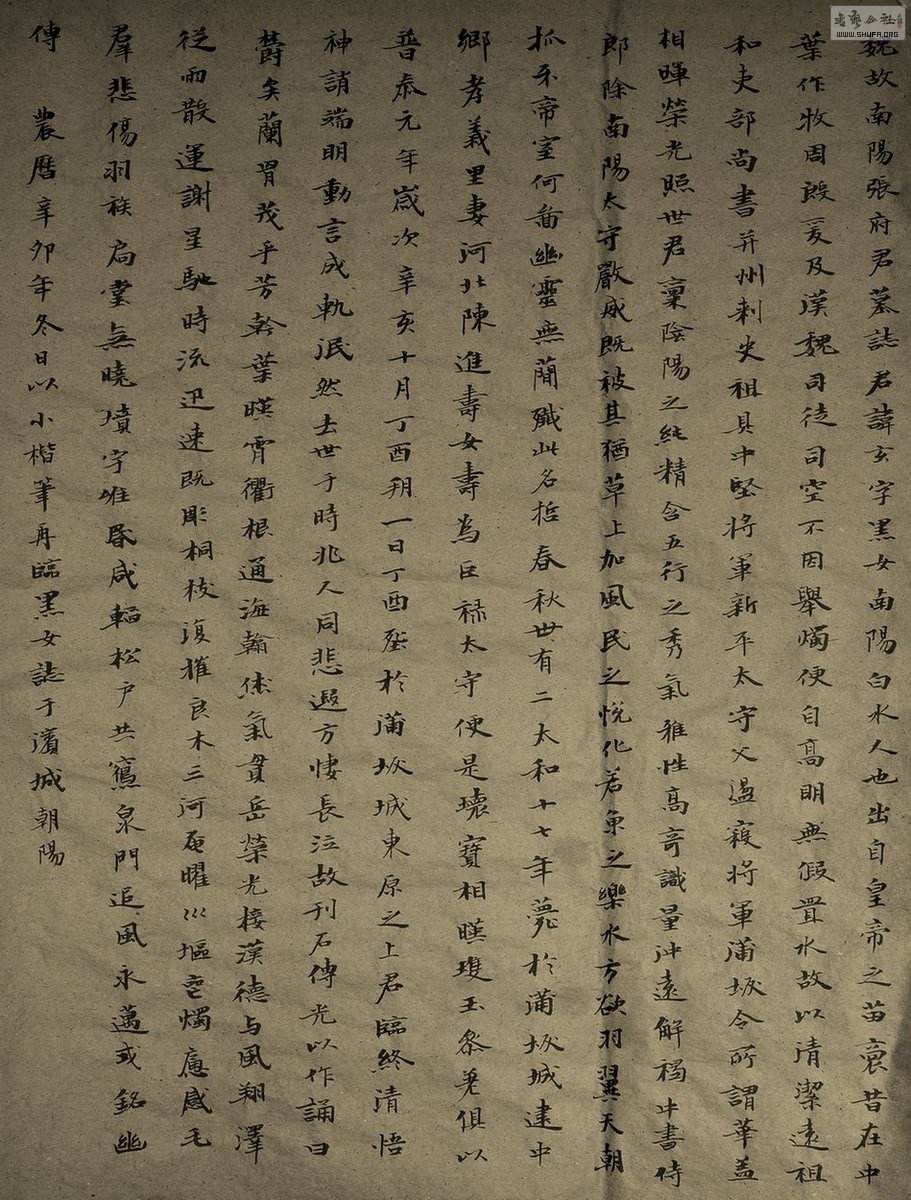 魏故南陽張府君墓誌君諱玄字黑女南陽白水人也出自皇帝之苗裔昔在中
葉作牧周殷爰及漢魏司徒司空不因舉燭便自高明無假置水故以清潔遠祖
和吏部尚書并州刺史祖具中堅將軍新平太守父盪寇將軍蒲坂令所謂華蓋
相暉榮光照世君稟陰陽之純精含五行之秀氣雅性高奇識量沖遠解褐中書侍
郎除南陽太守嚴威既被其猶草上加風民之悅化若魚之樂水方欲羽翼天朝
抓牙帝室何啚幽靈無簡殲此名哲春秋世有二太和十七年薨於蒲坂城建中
鄉孝義里妻河北陳進壽女壽為巨祿太守便是瓌寶相暎瓊玉參差俱以
普泰元年歲次辛亥十月丁酉朔一日丁酉塟於蒲坂城東原之上君臨終清悟
神誚端明動言成軌泯然去世于時兆人同悲遐方悽長泣故刊石傳光以作誦曰
欝矣蘭胃茂乎芳幹葉暎霄衢根通海翰休氣貫岳榮光接漢德与風翔澤
從雨散運謝星馳時流迅速既彫桐枝復摧良木三河奄曜巛堰空燭廕感毛
羣悲傷羽族扃堂無曉墳宇唯昏咸韜松戶共寪泉門追風永邁式銘幽
傳 農曆辛卯年冬日以小楷筆再臨黑女誌于濱城朝陽
書藝公社
WWW.SHUFA.ORG